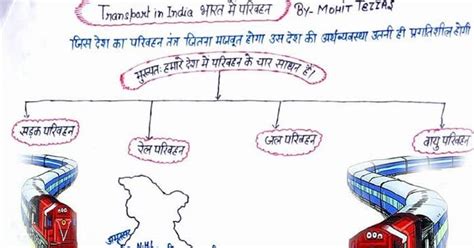 Transport in India भारत में परिवहन By- MOHIT
जिस देश का परिवहन तंत्र जितना मजबूत होगा उस देश की अर्थव्यवस्था उतनी ही प्रगतिशील होगी
मुख्यतः हमारे देश में परिवहन के चार साधन हैं।
सड़क परिवहन
रेल परिवहन
जल परिवहन
वायु परिवहन
अमृतसर